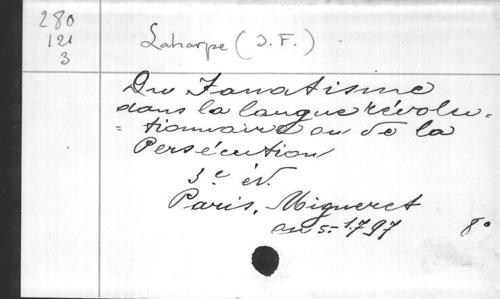 280
121
3
Laharpe (J. F.)
Du Fanatisme
dans la langue révolu-
-tionnaire ou de la
Persécution
3e éd.
Paris, Migneret
an 5-1797 8o